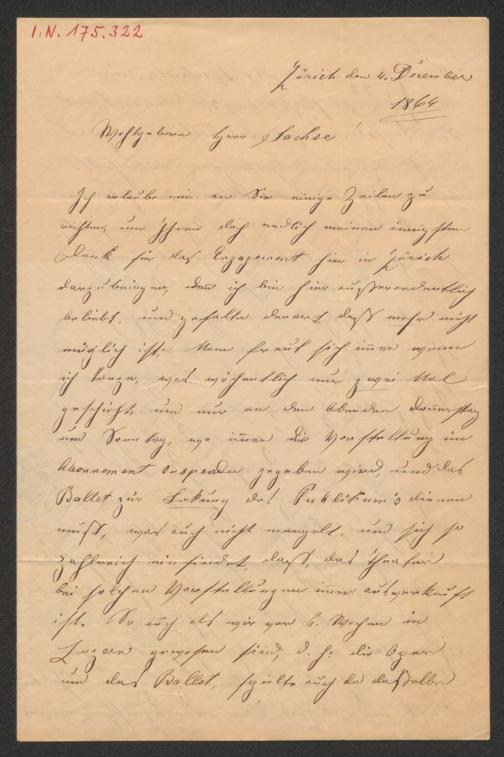 I.N. 175.322
Zürich den 4. Dezember
1864
Wohlgeborn Herr Sachse!
Ich erlaube mir an Sie einige Zeilen zu
richten, um Ihnen doch endlich meinen innigsten
Dank für das Engagement hier in Zürich
darzubringen, denn ich bin hier außerordentlich
beliebt, und gefalle derart daß mehr nicht
möglich ist. Man freut sich immer wenn
ich tanze, was wöchentlich nur zwei Mal
geschieht, und nur an den Abenden Donnerstag
und Sonntag, wo immer die Vorstellung im
Abonnement suspendu gegeben wird, und das
Ballet zur Lokung des Publikum's dienen
muß, was auch nicht mangelt, und sich so
zahlreich einfindet, daß das Theater
bei solchen Vorstellungen immer ausverkauft
ist. So auch als wir vor 6. Wochen in
gewesen sind, d. h. die Oper
und das Ballet, spielte auch da dasselbe